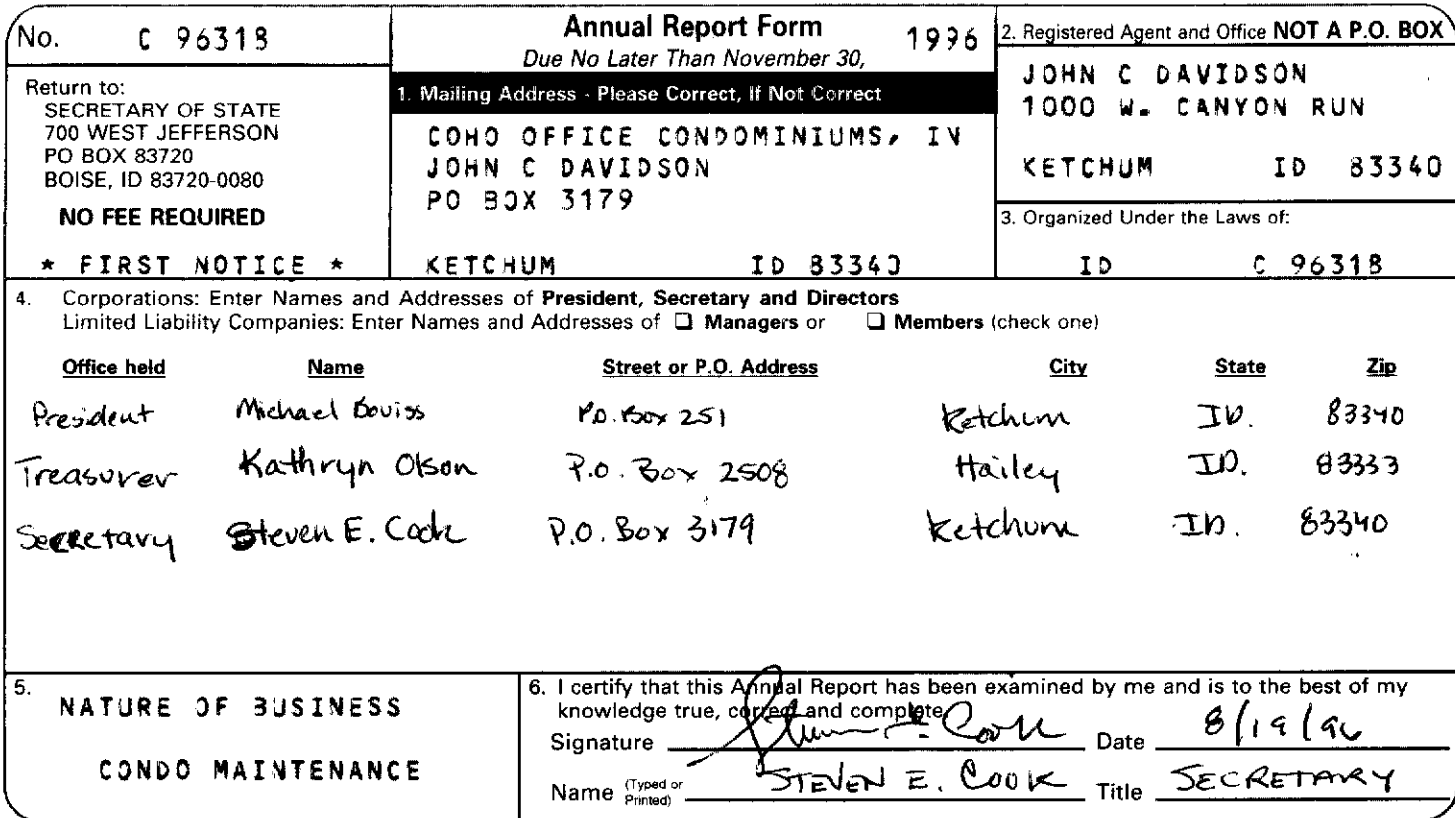 No. C 96318
Return to:
SECRETARY OF STATE
700 WEST JEFFERSON
PO BOX 83720
BOISE, ID 83720-0080
NO FEE REQUIRED
* FIRST NOTICE *
Annual Report Form 1996
Due No Later Than November 30,
1. Mailing Address - Please Correct, If Not Correct
COHO OFFICE CONDOMINIUMS, IN
JOHN C DAVIDSON
PO BOX 3179
KETCHUM ID 83340
2. Registered Agent and Office NOT A P.O. BOX
JOHN C DAVIDSON
1000 W. CANYON RUN
KETCHUM ID 83340
3. Organized Under the Laws of:
ID C 96318
4. Corporations: Enter Names and Addresses of President, Secretary and Directors
Limited Liability Companies: Enter Names and Addresses of ❑ Managers or ❑ Members (check one)
Office held Name Street or P.O. Address City State Zip
President Michael Boviss P.O. Box 251 Ketchum ID. 83340
Treasurer Kathryn Olson P.O. Box 2508 Hailey ID. 83333
Secretary Steven E. Cook P.O. Box 3179 Ketchum ID. 83340
5. NATURE OF BUSINESS
CONDO MAINTENANCE
6. I certify that this Annual Report has been examined by me and is to the best of my
knowledge true, correct and complete
Signature Steven E. Cook Date 8/19/96
Name (Typed or Printed) STEVEN E. COOK Title SECRETARY